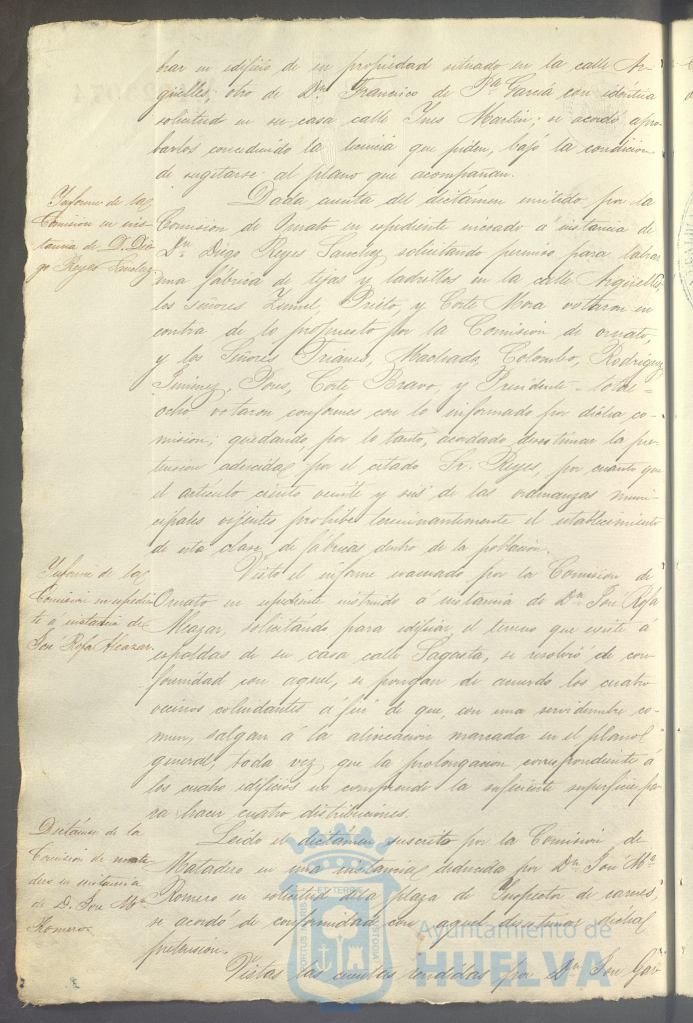 brar un edificio de su propiedad situado en la calle Ar-
güelles; otro de Dn. Francisco de Pla. García con idéntica
solicitud en su casa calle Ines Martin; se acordó apro-
barlos concediendo la licencia que piden, bajo la condición
de sugetarse al plano que acompañan.
Informe de la
Comision en ins-
tancia de D. Die-
go Reyes Sanchez
Dada cuenta del dictámen emitido por la
Comision de Ornato en espediente incoado á instancia de
Dn. Diego Reyes Sanchez solicitando permiso para labrar
una fábrica de tejas y ladrillos en la calle Argüelles,
los señores Prieto, y Corte Mora votaron en
contra de lo propuesto por la Comision de ornato,
y los Señores Trianes, Machado, Colombo, Rodriguez
Jimenez, Pons, Corte Bravo, y Presidente - total=
ocho votaron conformes con lo informado por dicha co-
mision; quedando, por lo tanto, acordado desestimar la pre-
tension aducida por el citado Sr. Reyes, por cuanto que
el artículo ciento veinte y seis de las ordenanzas muni-
cipales vijentes prohibe terminantemente el establecimiento
de esta clase de fábricas dentro de la poblacion.
Informe de la
Comision en espedien-
te a instancia de
José Rofa Alcazar.
Visto el informe evacuado por la Comision de
Ornato en espediente instruido á instancia de Dn. José Rofa
Alcazar, solicitando para edificar el terreno que existe á
espaldas de su casa calle Sagasta, se resolvió de con-
formidad con aquel, se pongan de acuerdo los cuatro
vecinos colindantes á fin de que, con una servidumbre co-
mun, salgan á la alineacion marcada en el plano
general, toda vez que la prolongacion correspondiente á
los cuatro edificios no comprende la suficiente superficie pa-
ra hacer cuatro distribuciones.
Dictámen de la
Comision de mata-
dero en instancia
de D. José Ma.
Romero.
Leido el dictámen suscrito por la Comision de
Matadero en una instancia deducida por Dn. José Ma.
Romero en solicitud de la plaza de Inspector de carnes,
se acordó de conformidad con aquel desestimar dicha
pretension.
Vistas las cuentas rendidas por Dn. José Gar-
Ayuntamiento de
HUELVA